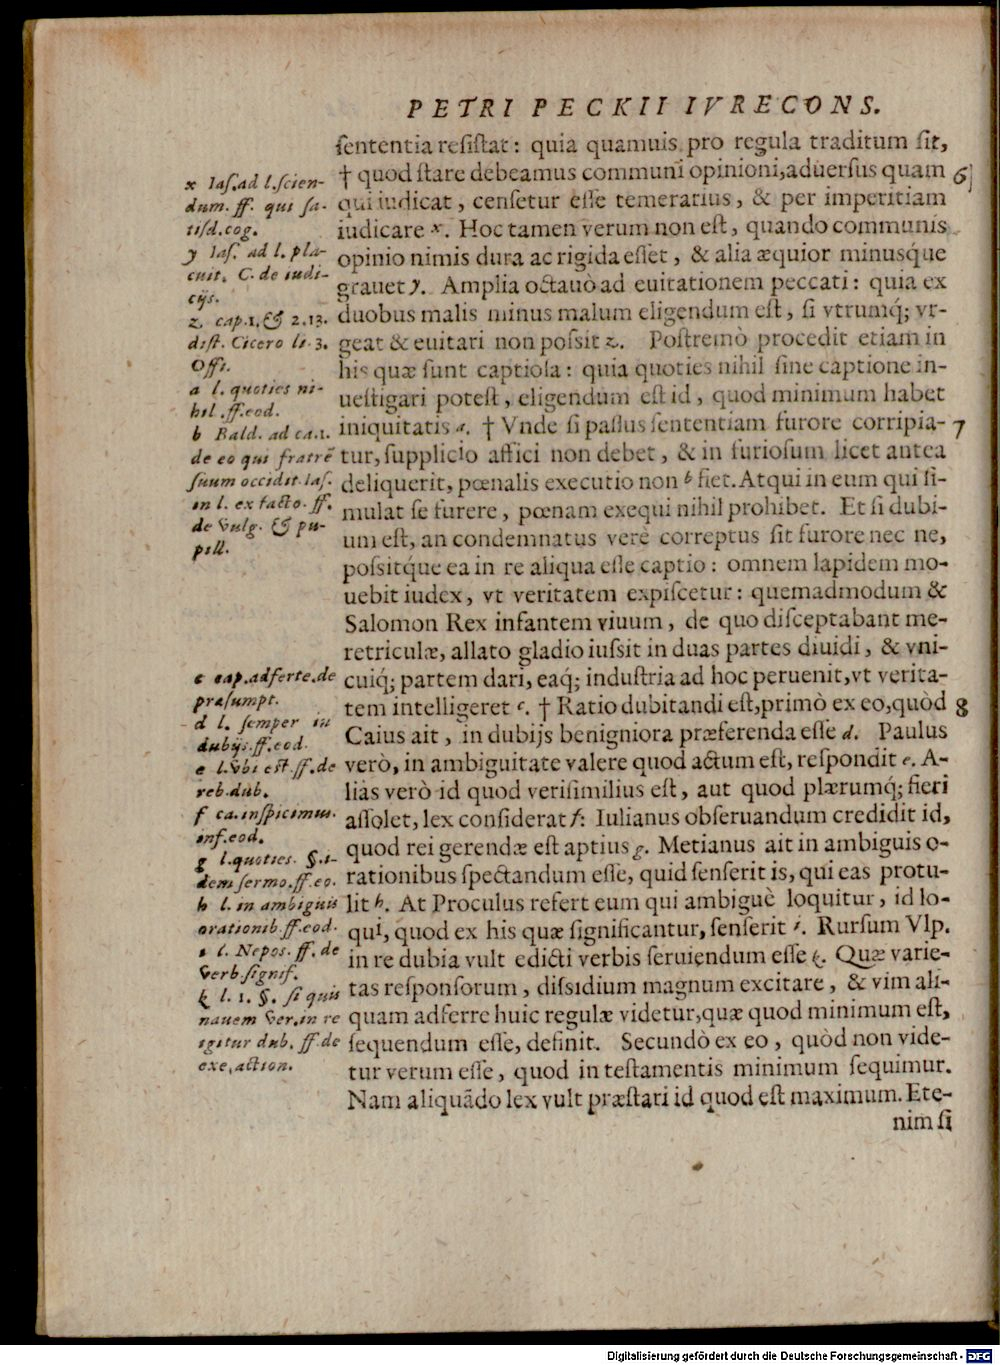 PETRI PECKII IVRECONS.
sententia resistat: quia quamuis pro regula traditum sit,
† quod stare debeamus communi opinioni, aduersus quam 6
qui iudicat, censetur esse temerarius, & per imperitiam
iudicare x. Hoc tamen verum non est, quando communis
opinio nimis dura ac rigida esset, & alia æquior minusq́ue
grauet y. Amplia octauò ad euitationem peccati: quia ex
duobus malis minus malum eligendum est, si vtrumq́; vr-
geat & euitari non possit z. Postremò procedit etiam in
his quæ sunt captiosa: quia quoties nihil sine captione in-
uestigari potest, eligendum est id, quod minimum habet
iniquitatis a. † Vnde si passus sententiam furore corripia- 7
tur, supplicio affici non debet, & in furiosum licet antea
deliquerit, pœnalis executio non b fiet. Atqui in eum qui si-
mulat se furere, pœnam exequi nihil prohibet. Et si dubi-
um est, an condemnatus verè correptus sit furore nec ne,
possitq́ue ea in re aliqua esse captio: omnem lapidem mo-
uebit iudex, vt veritatem expiscetur: quemadmodum &
Salomon Rex infantem viuum, de quo disceptabant me-
retriculæ, allato gladio iussit in duas partes diuidi, & vni-
cuiq́; partem dari, eaq́; industria ad hoc peruenit, vt verita-
tem intelligeret c. † Ratio dubitandi est, primò ex eo, quòd 8
Caius ait, in dubijs benigniora præferenda esse d. Paulus
verò, in ambiguitate valere quod actum est, respondit e. A-
lias verò id quod verisimilius est, aut quod plærumq́; fieri
assolet, lex considerat f: Iulianus obseruandum credidit id,
quod rei gerendæ est aptius g. Metianus ait in ambiguis o-
rationibus spectandum esse, quid senserit is, qui eas protu-
lit h. At Proculus refert eum qui ambiguè loquitur, id lo-
qui, quod ex his quæ significantur, senserit i. Rursum Vlp.
in re dubia vult edicti verbis seruiendum esse k. Quæ varie-
tas responsorum, dissidium magnum excitare, & vim ali-
quam adferre huic regulæ videtur, quæ quod minimum est,
sequendum esse, definit. Secundò ex eo, quòd non vide-
tur verum esse, quod in testamentis minimum sequimur.
Nam aliquãdo lex vult præstari id quod est maximum. Ete-
nim si
x Ias. ad l. scien-
dum. ff. qui sa-
tisd. cog.
y Ias. ad l. pla-
cuit. C. de iudi-
cijs.
z cap. 1. & 2. 13.
dist. Cicero li. 3.
Offi.
a l. quoties ni-
hil. ff. eod.
b Bald. ad ca. 1.
de eo qui fratrẽ
suum occidit. Ias.
in l. ex facto. ff.
de vulg. & pu-
pill.
c cap. adferte. de
præsumpt.
d l. semper in
dubijs. ff. eod.
e l. vbi est. ff. de
reb. dub.
f ca. inspicimus.
inf. eod.
g l. quoties. §. i-
dem sermo. ff. eo.
h l. in ambiguis
orationib. ff. eod.
i l. Nepos. ff. de
verb. signif.
k l. 1. §. si quis
nauem ver. in re
igitur dub. ff. de
exe. action.
Digitalisierung gefördert durch die Deutsche Forschungsgemeinschaft - DFG